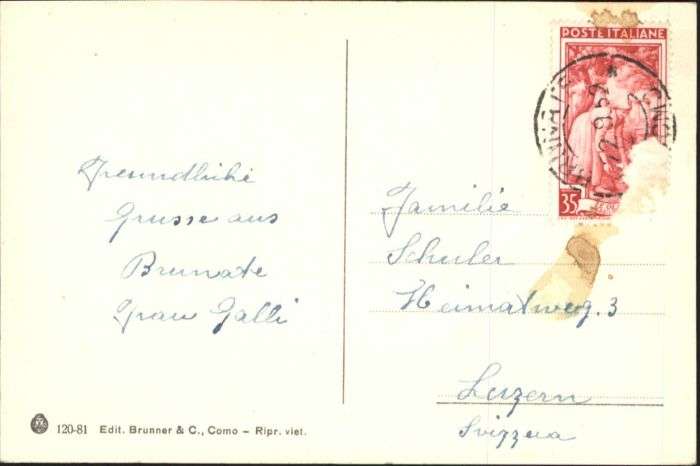 Freundliche
Grüsse aus
Brunate
Frau Galli
POSTE ITALIANE
35
22.9.52
Familie
Schuler
Heimatweg. 3
Luzern
Svizzera
120-81 Edit. Brunner & C., Como – Ripr. viet.